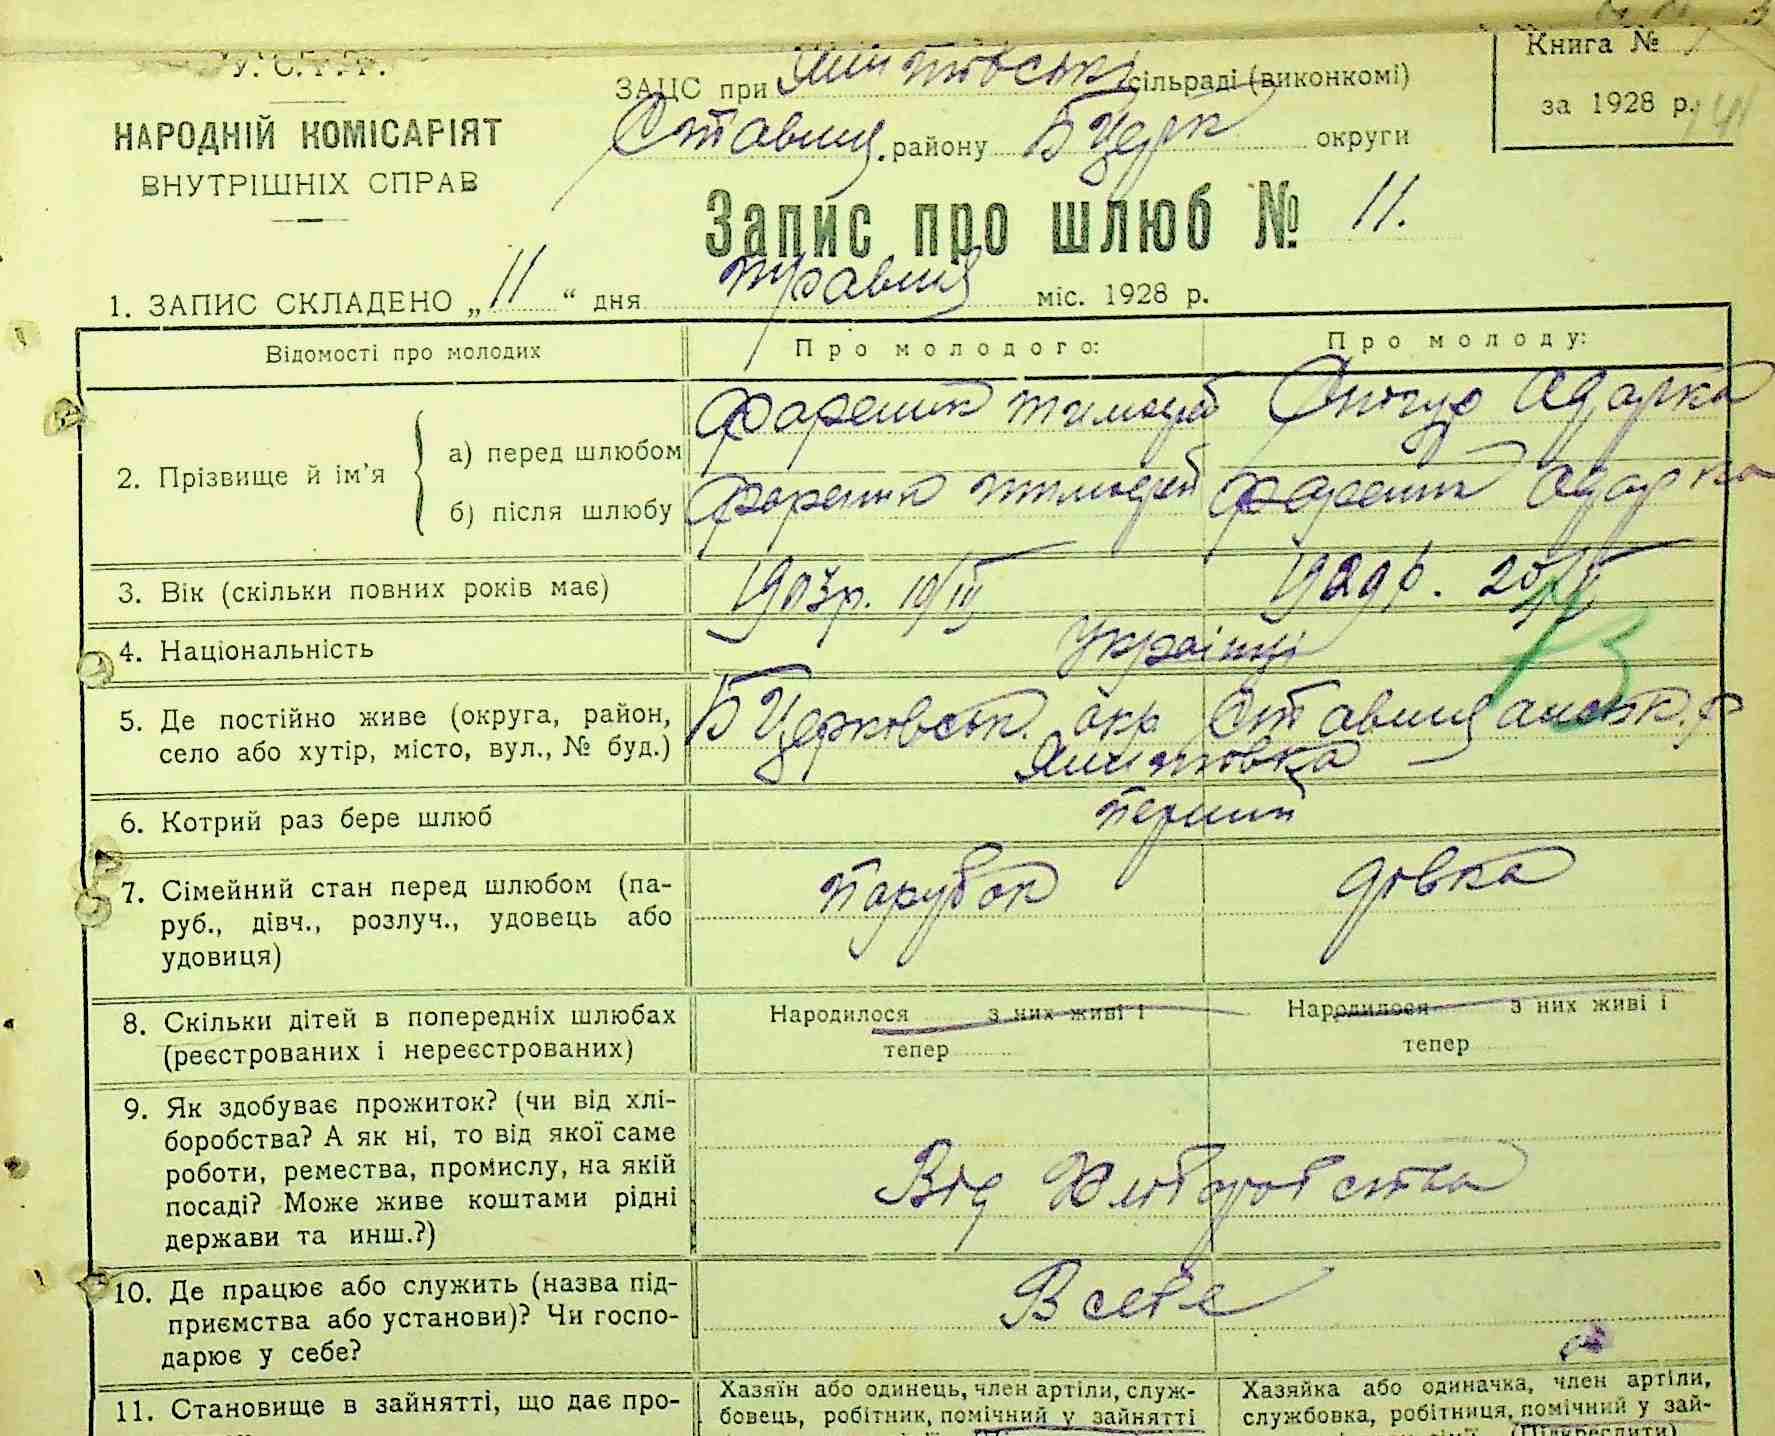 У. С. Р. Р.
НАРОДНІЙ КОМІСАРІЯТ
ВНУТРІШНІХ СПРАВ
ЗАЦС при сільраді (виконкомі)
Ставищ. району Б Церк округи
Книга №
за 1928 р.
Запис про шлюб № 11.
1. ЗАПИС СКЛАДЕНО „11“ дня травня міс. 1928 р.
Відомості про молодих
Про молодого:
Про молоду:
2. Прізвище й ім’я
а) перед шлюбом
Фареник Тимофей
Одарка
б) після шлюбу
Фареник Тимофей
Фареник Одарка
3. Вік (скільки повних років має)
1903р. 10/III
4. Національність
українці
5. Де постійно живе (округа, район,
село або хутір, місто, вул., № буд.)
Б Церковськ. окр. Ставищанськ. р
6. Котрий раз бере шлюб
Перший
7. Сімейний стан перед шлюбом (па-
руб., дівч., розлуч., удовець або
удовиця)
Парубок
дівка
8. Скільки дітей в попередніх шлюбах
(реєстрованих і нереєстрованих)
Народилося з них живі і
тепер
Народилося з них живі і
тепер
9. Як здобуває прожиток? (чи від хлі-
боробства? А як ні, то від якої саме
роботи, ремества, промислу, на якій
посаді? Може живе коштами рідні
держави та инш.?)
Від Хліборобства
10. Де працює або служить (назва під-
приємства або установи)? Чи госпо-
дарює у себе?
В себе
11. Становище в зайнятті, що дає про-
Хазяїн або одинець, член артіли, служ-
бовець, робітник, помічний у зайнятті
Хазяйка або одиначка, член артіли,
службовка, робітниця, помічний у зай-
(Підкреслити)